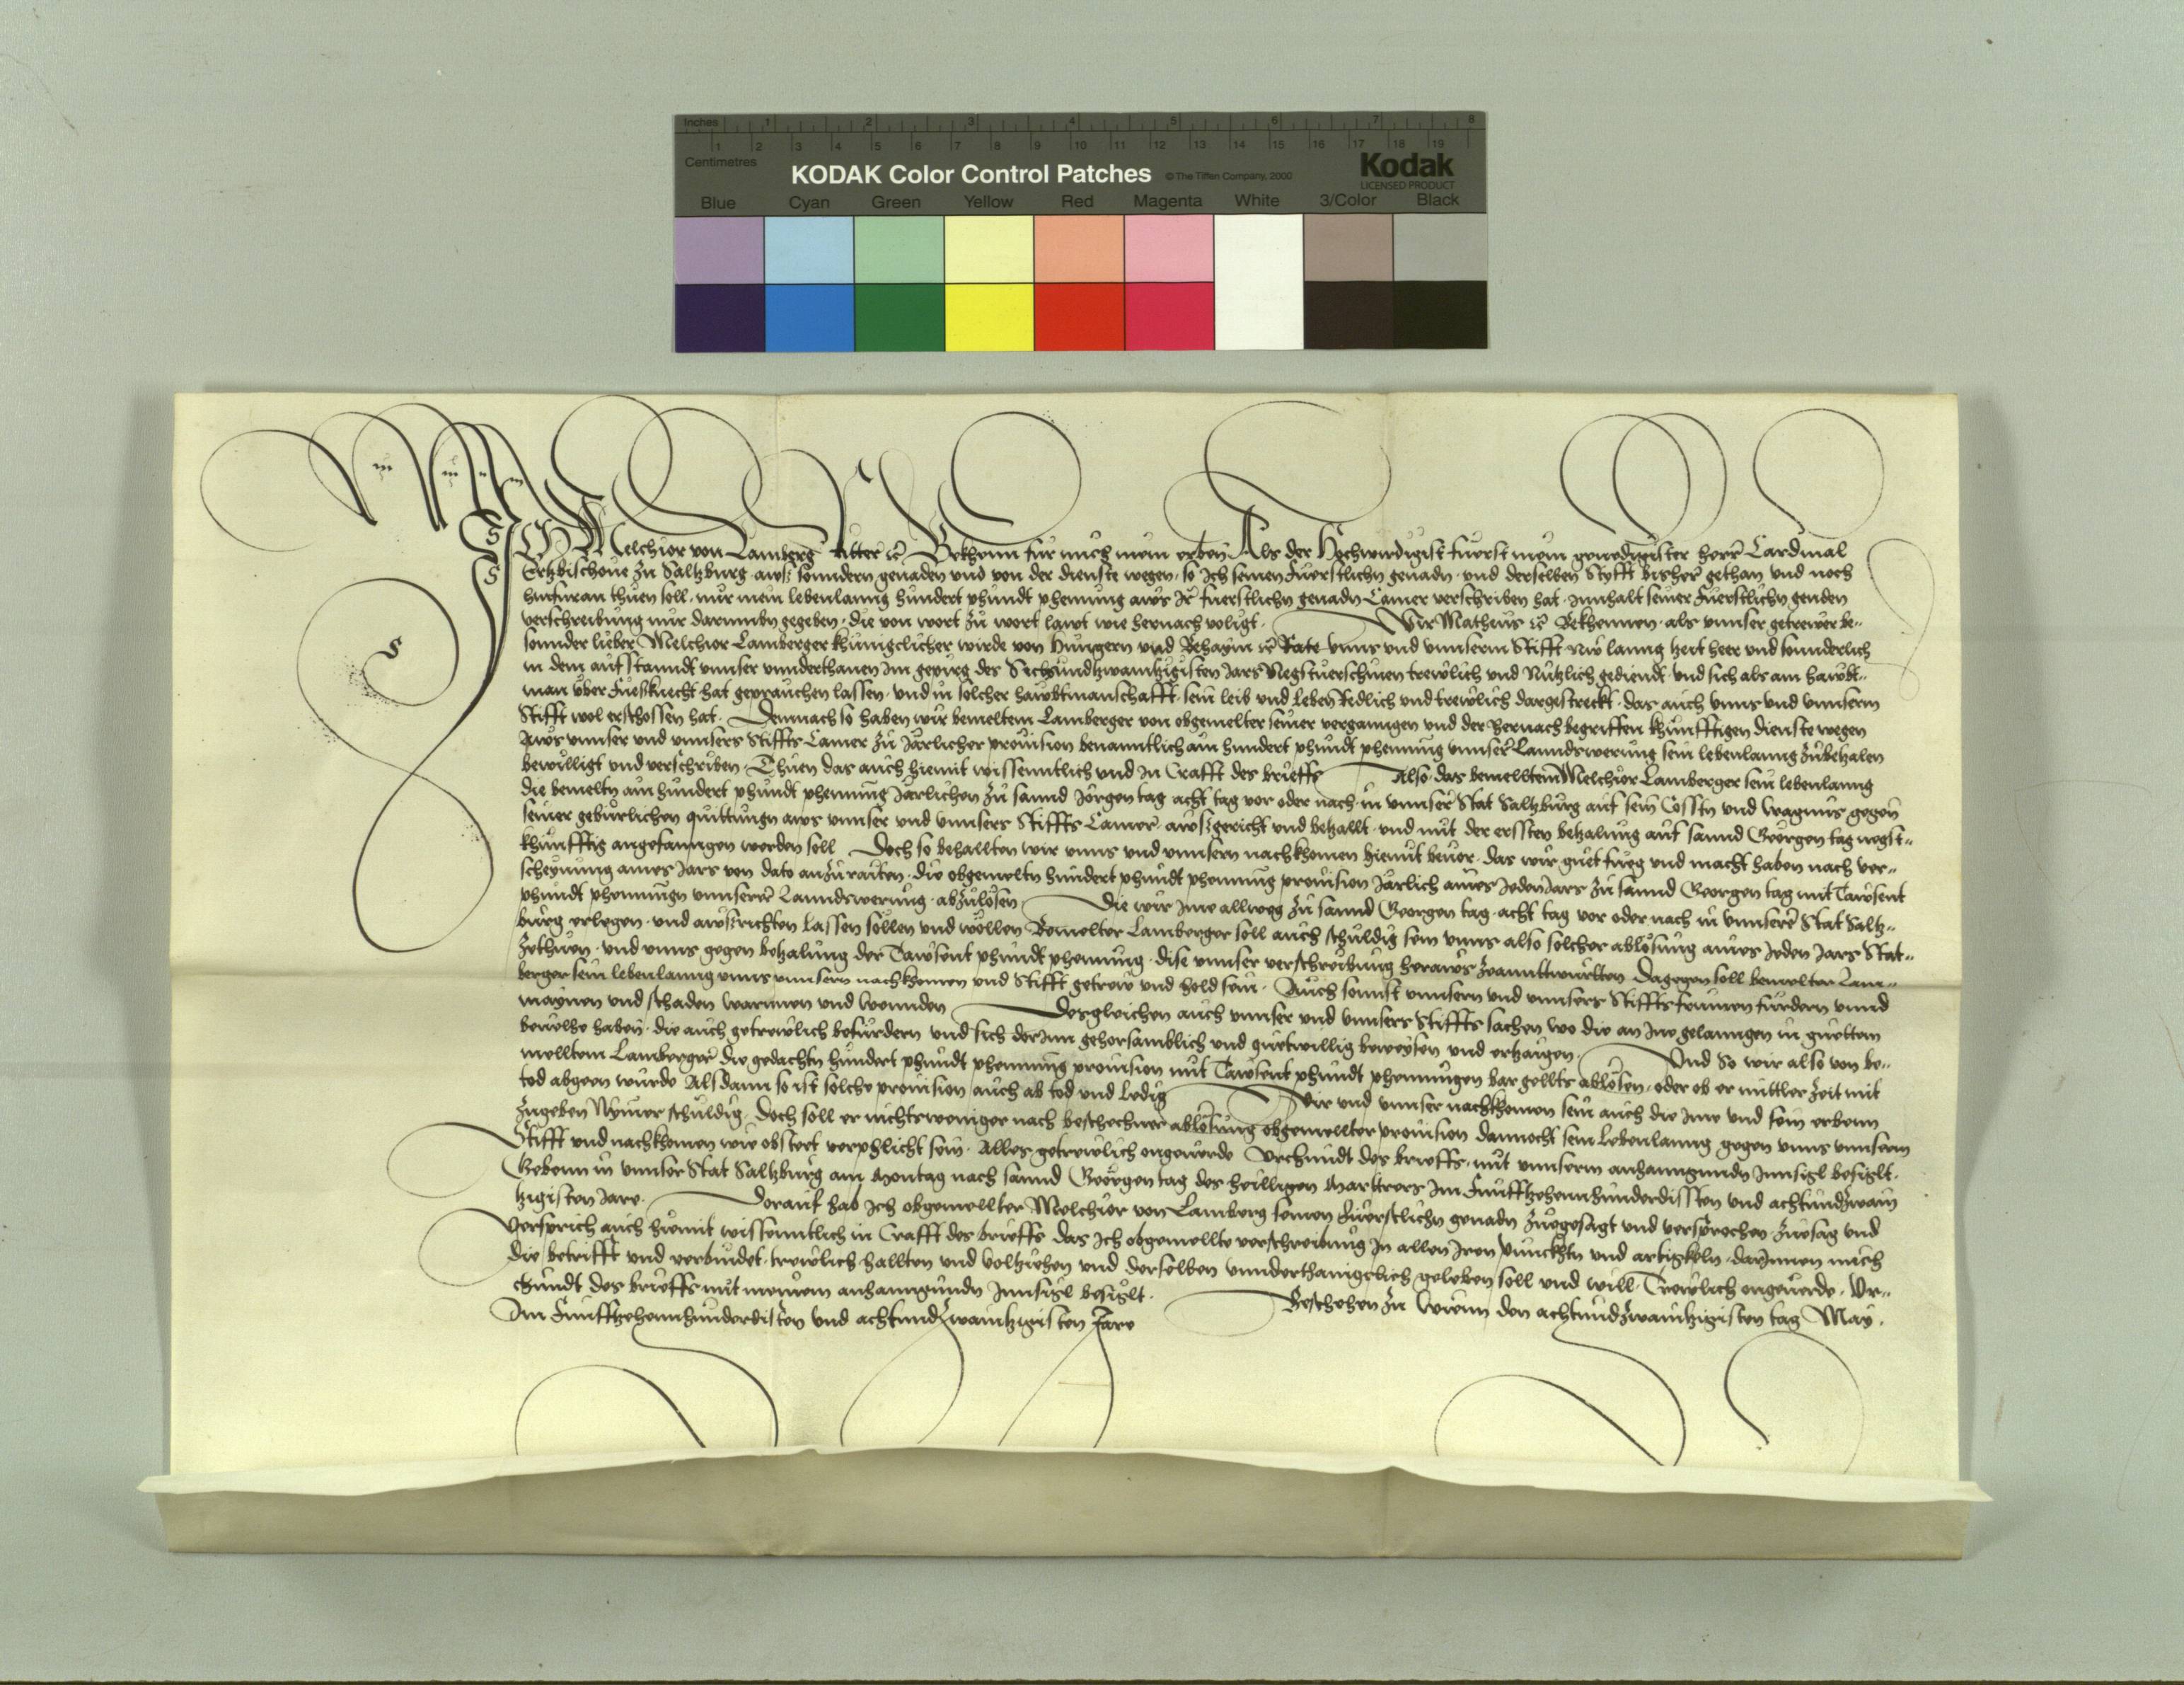 Inches 1 2 3 4 5 6 7 8
1 2 3 4 5 6 7 8 9 10 11 12 13 14 15 16 17 18 19
Centimetres
KODAK Color Control Patches © The Tiffen Company, 2000 Kodak
LICENSED PRODUCT
Blue Cyan Green Yellow Red Magenta White 3/Color Black
ICH Melchior von Lamberg Ritter ꝛc Bekhenn für mich mein erben Als der Hochwirdigist fuerst mein genedigister herr Cardinal
Ertzbischove zu Saltzburg aws sonndern genaden und von der dienste wegen so Ich seinen Fuerstlichn genadn und derselben Styfft bisher gethan und noch
hinfuran thuen soll mir mein lebenlanng hundert phundt phenning aws Ir fuerstlichn genadn Camer verschriben hat Innhalt seiner Fuerstlichn genden
verschreibung mir darumbn gegeben die von wort zu wort lawt wie hernach volgt Wir Matheus ꝛc Bekhennen als unnser getrewer be-
sonnder lieber Melchior Lamberger khunigclicher wirde von Hungern und Behaym ꝛc Rate unns und unnserm Stifft nw lanng zeit heer und sonnderlich
in dem aufstanndt unnser unnderthanen im gepirg des Sechsundzwaintzigisten Jars negstuerschinen trewlich und Nutzlich gediendt und sich als ain hawbt-
man über Fuesknecht hat geprauchen lassen und in solcher hawbtmanschafft sein leib und leben Redlich und trewlich dargestreckt das auch unns und unnserm
Stifft wol erschossen hat Demnach so haben wir bemeltem Lamberger von obgemelter seiner vergangen und der hernach begriffen khunfftigen dienste wegen
Aws unnser und unnsers Stiffts Camer zu Järlicher provision benanntlich ain hundert phundt phenning unnser Lanndswerung sein lebenlanng zubetzalen
bewilligt und verschriben Thuen das auch hiemit wissenntlich und in Crafft des brieffs Also das bemelltem Melchior Lamberger sein lebenlanng
die bemeltn ain hundert phundt phenning Järlichen zu sannd Jörgen tag acht tag vor oder nach in unnser Stat Saltzburg auf sein Cosstn und wagnus gegen
seiner gebürlichen quittungn aws unnser und unnsers Stiffts Camer awsgericht und betzallt und mit der erssten betzalung auf sannd Georgen tag negst-
khunfftig angefanngen werden soll Doch so behallten wir unns und unnsern nachkhomen hiemit bevor das wir guet fueg und macht haben nach ver-
scheynung aines Jars von dato anzuraiten die obgemeltn hundert phundt phenning provision Järlich aines Jeden Jars zu sannd Georgen tag mit Tawsent
phundt phenningn unnserer Lanndswerung abzulösen Die wir ime allweg zu sannd Georgen tag acht tag vor oder nach in unnserer Stat Saltz-
burg erlegen und awsrichten lassen sollen und wollen Bemelter Lamberger soll auch schuldig sein unns also solcher ablosung aines Jeden Jars Stat-
zethuen und unns gegen betzalung der Tawsent phundt phenning dise unnser verschreibung heraws zeanntwurtten Dagegen soll bemelter Lam-
berger sein lebenlanng unns unnsern nachkhomen und Stifft getrew und hold sein Auch sonnst unnsern und unnsers Stiffts frumen furdern unnd
maynen und schaden warnnen und wennden Desgleichen auch unnser und unnsers Stiffts sachen wo die an Ine gelanngen in guettem
bevelhe haben die auch getrewlich befürdern und sich darinn gehorsamblich und guetwillig beweysen und ertzaigen Und So wir also von be-
melltem Lamberger die gedachtn hundert phundt phenning provision mit Tawsent phundt phenningen bar gelltz ablösen oder ob er mittler Zeit mit
tod abgeen wurde Alsdann so ist solche provision auch ab tod und ledig Wir und unnser nachkhomen sein auch die Ime und sein erbenn
Zugeben Nymer schuldig Doch soll er nichtsweniger nach beschechner ablösung obgemellter provision dannocht sein lebenlanng gegen unns unnserm
Stifft und nachkhomen wie obsteet verphlicht sein Alles getrewlich ongeverde Urchundt des brieffs mit unnserm anhanngundn Innsigl besiglt
Gebenn in unnser Stat Saltzburg am Montag nach sannd Georgen tag des heilligen Martrers Im Funffzehennhunderdissten und achtundzwain
tzigisten Jare Darauf hab Ich obgemellter Melchior von Lamberg seinen Fuerstlichn genadn zuegesagt und versprochen Zuesag und
Versprich auch hiemit wissenntlich in Crafft des brieffs das Ich obgemellte verschreibung in allen Iren punckhtn und artigkeln darinnen mich
die betrifft und verbindet trewlich hallten und voltziehen und derselben unnderthanigclich geleben soll und will Trewlich ongeverde Ur-
chundt des brieffs mit meinem anhanngundn Innsigl besiglt Beschehen zu Wienn den achtundzwaintzigisten tag May
Im Funffzehennhunderdisten und achtundzwaintzigisten Jare